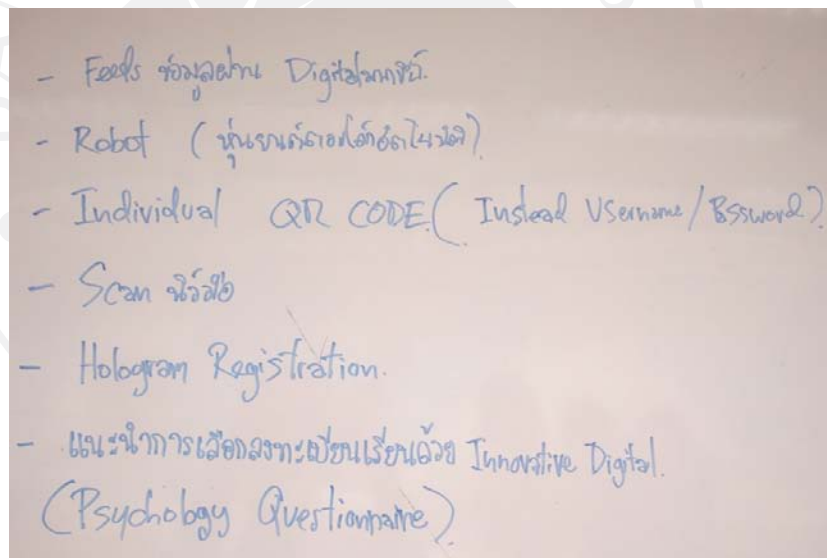 - Feeds ข้อมูลผ่าน Digitalมากขึ้น.
- Robot (หุ่นยนต์ตอบโต้อัตโนมัติ)
- Individual QR CODE. (Instead Username/Password)
- Scan นิ้วมือ
- Hologram Registration.
- แนะนำการเลือกลงทะเบียนเรียนด้วย Innovative Digital.
(Psychology Questionnaire)